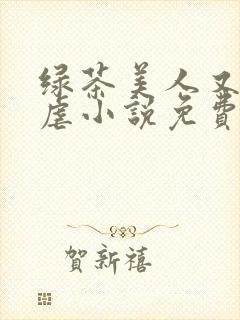 绿茶美人又
虐小説免費
賀新禧